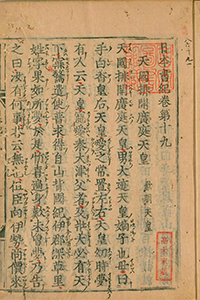 日本書紀卷第十九
天國排開廣庭天皇 欽明天皇
天國排開廣庭天皇男大迹天皇嫡子也母曰
手白香皇后天皇愛之常置左右天皇幼時夢
有人云天皇寵愛秦大津父者及壯大必有天
下寤驚遣使普求得自山背國紀伊郡深草里
姓字果如所夢於是忻喜遍身歎未曾夢乃告
之曰汝有何事答云無也但臣向伊勢商價來